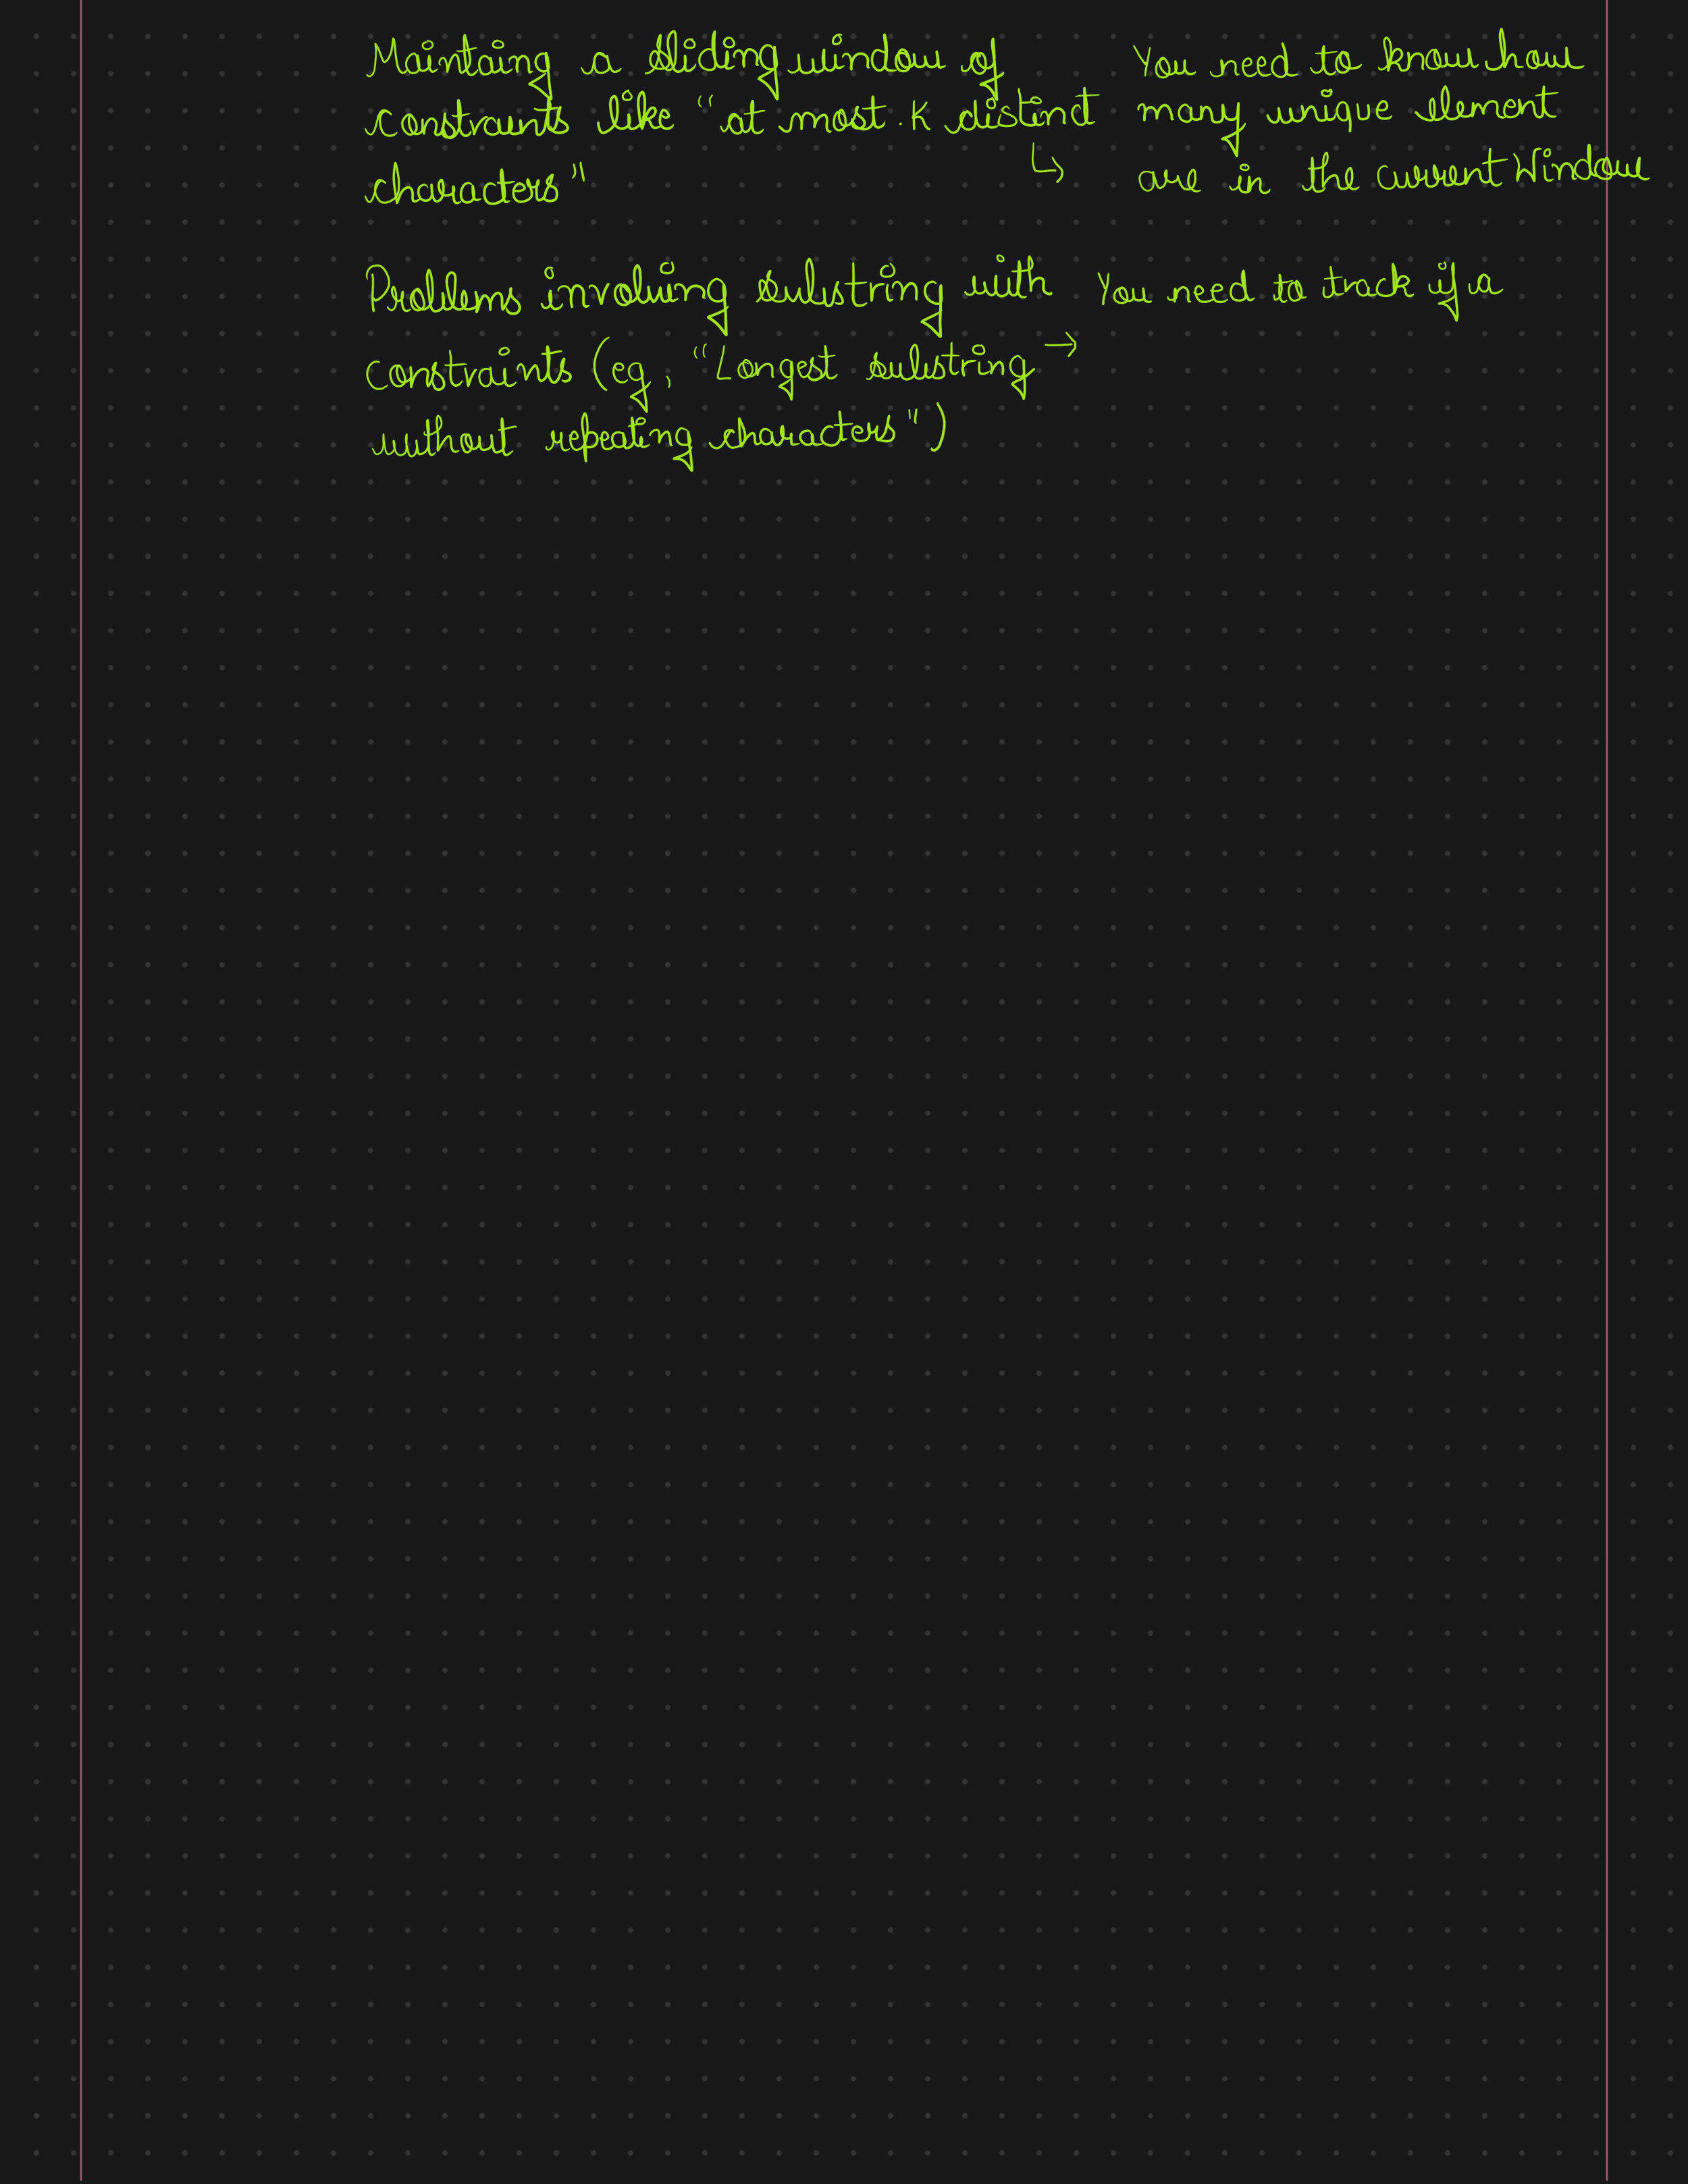 Maintaing a sliding window of
constraints like "at most K distinct
characters"
↳ You need to know how
many unique element
are in the current Window
Problems involving substring with
constraints (eg, "Longest substring
without repeating characters")
→ You need to track if a